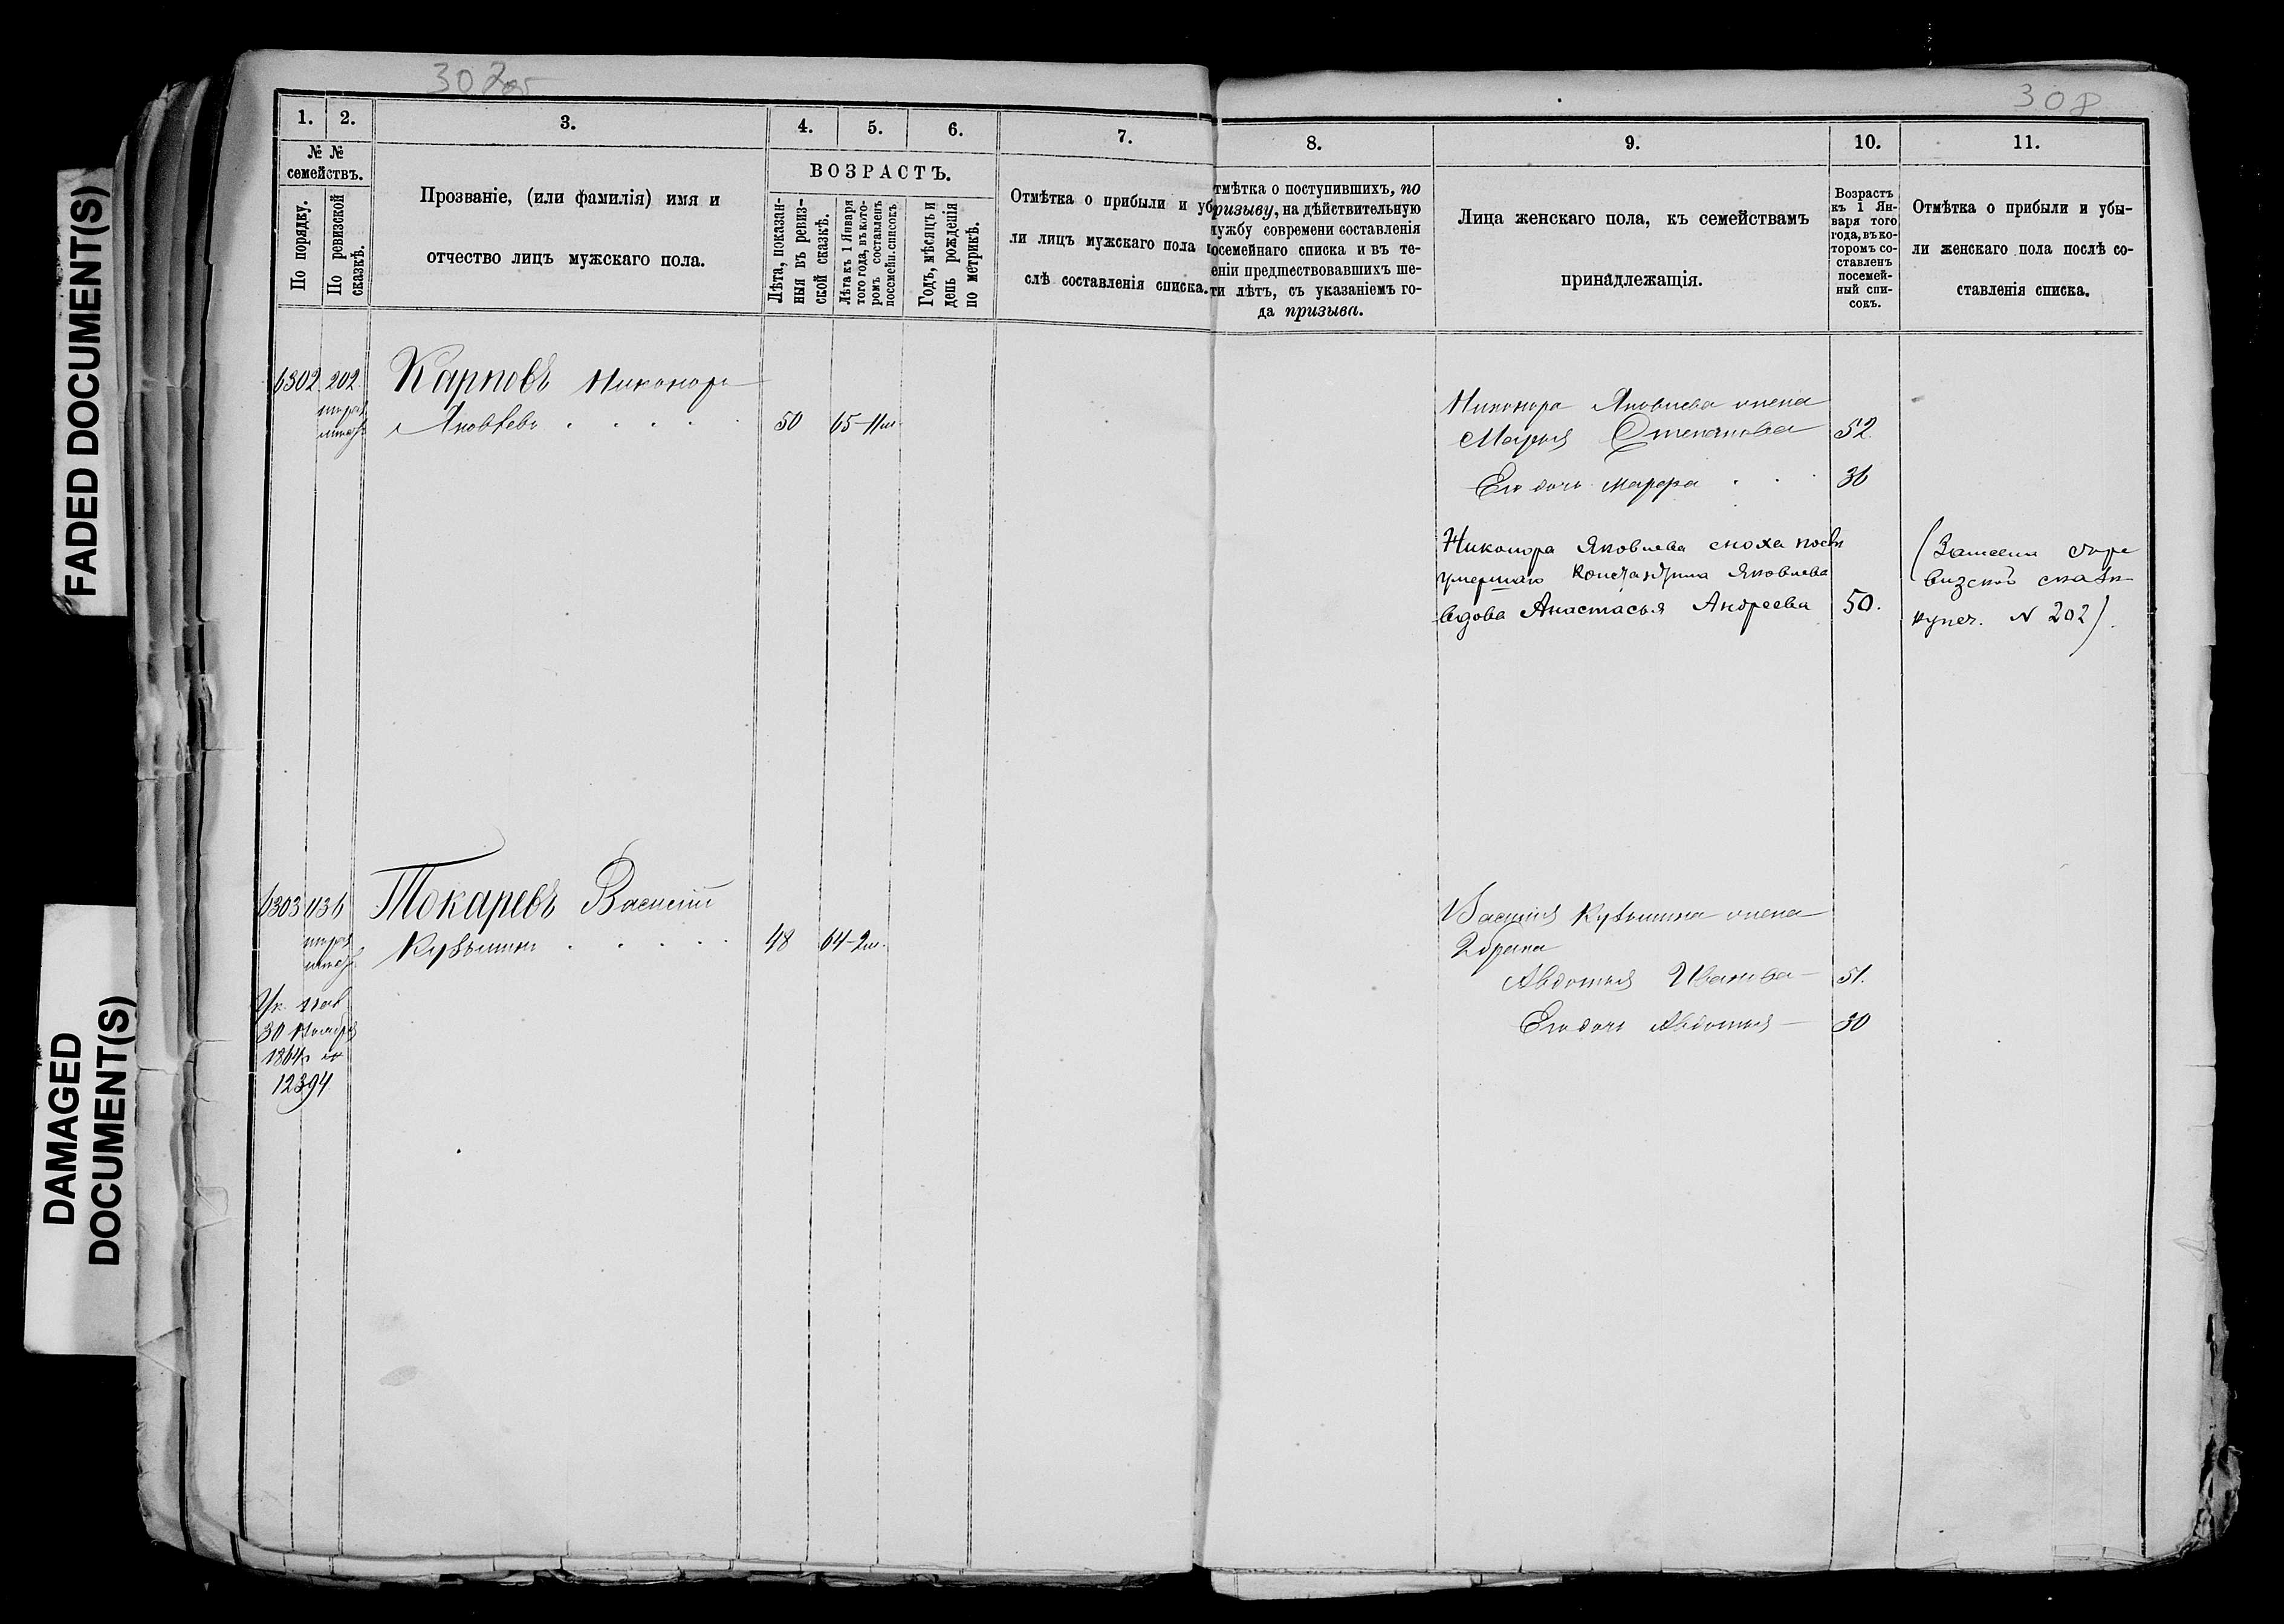 FADED DOCUMENT(S)
DAMAGED
DOCUMENT(S)
307об
308
1.
2.
3.
4.
5.
6.
7.
8.
9.
10.
11.
№ №
семействъ.
По порядку.
По ревизской
сказкѣ.
Прозваніе, (или фамилія) имя и
отчество лицъ мужскаго пола.
ВОЗРАСТЪ.
Лѣта, показан-
ныя въ ревиз-
ской сказкѣ.
Лѣта къ 1 Января
того года, въ кото-
ромъ составленъ
посемейн. списокъ
Годъ, мѣсяцъ и
день рожденія
по метрикѣ.
Отмѣтка о прибыли и уб
ли лицъ мужскаго пола
слѣ составленія списка.
тмѣтка о поступившихъ, по
ризыву, на дѣйствительную
ужбу современи составленія
осемейнаго списка и въ те-
еніи предшествовавшихъ ше-
ти лѣтъ, съ указаніемъ го-
да призыва.
Лица женскаго пола, къ семействамъ
принадлежащія.
Возрастъ
къ 1 Ян-
варя того
года, въ ко-
торомъ со-
ставленъ
посемей-
ный спи-
сокъ.
Отмѣтка о прибыли и убы-
ли женскаго пола послѣ со-
ставленія списка.
6302 202 Карповъ Никоноръ
Яковлевъ . . . . . 50 65-11м.
Никонора Яковлева жена
Марья Степанова 52
Его дочь Марфа . . . 36
Никонора Яковлева сноха послѣ
умершаго Константина Яковлева
вдова Анастасья Андреева 50.
визской сказкѣ
купеч. № 202).
6303 1136 Токаревъ Василій
Кузьминъ . . . . . 48 64-2м.
30 Ноября
1864г. за
12394
Василія Кузьмина жена
Авдотья Иванова 51.
Его дочь Авдотья 30